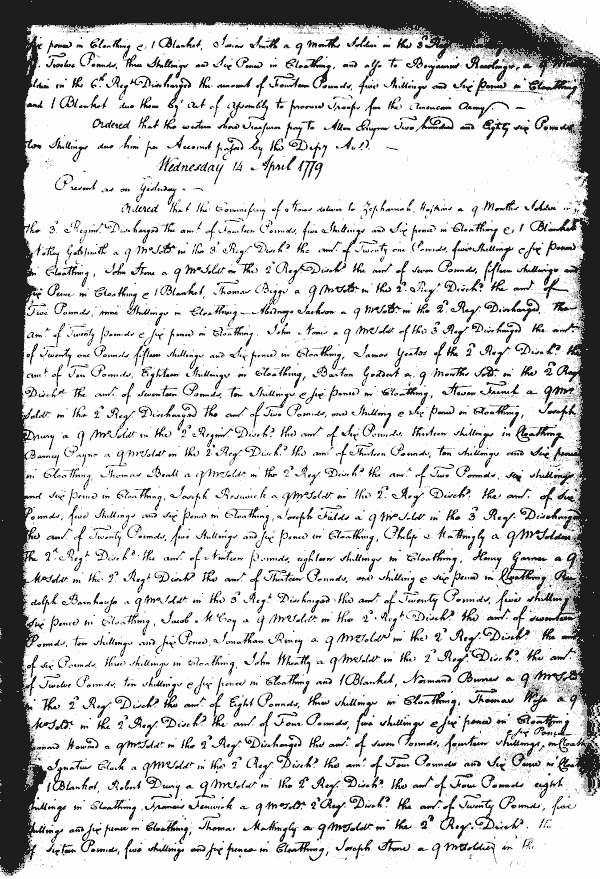 Six pence in Cloathing & 1 Blanket, Smith a 9 Months Soldier in the 3d
Twelve Pounds, three Shillings and Six Pence in Cloathing, and also to Benjamin Rawlings, a 9
in the 6th Regt Discharged the amount of Fourteen Pounds, five Shillings and Six pence in Cloathing
and 1 Blanket due them by Act of Assembly to procure Troops for the American Army
Ordered that the western shore Treasurer pay to Allen Two hundred and Eighty six Pounds
ten Shillings due him per Account passed by the Depy Audr.
Wednesday 14 April 1779
Present as on Yesterday.
Ordered that the Commissary of Stores deliver to Zephaniah Hopkins a 9 Months Soldier in
the 3d Regimt Discharged the amt of Fourteen Pounds, five Shillings and Six pence in Cloathing & 1 Blanket
Goldsmith a 9 Mo Soldr in the 3d Regt Dischd the amt of Twenty one Pounds, five Shillings & six pence
in Cloathing, John Stone a 9 Mo Soldr in the 2d Regt Dischd the amt of seven Pounds, fifteen shillings and
six Pence in Cloathing & 1 Blanket, Thomas Biggs a 9 Mo Soldr in the 2d Regt Dischd the amt of
Two Pounds, nine Shillings in Cloathing Jackson a 9 Mo Soldr in the 2d Regt Discharged, the
amt of Twenty pounds & six pence in Cloathing. John a 9 Mo Soldr of the 3d Regt Discharged the amt
of Twenty one Pounds fifteen shillings and Six pence in Cloathing, James Yeates of the 2d Regt Dischd the
amt of Ten Pounds, Eighteen Shillings in Cloathing, Barton a 9 Months Soldr in the 2d Regt
Dischd the amt of seventeen Pounds, ten Shillings & six pence in Cloathing, Steven French a 9 Mo
Soldr in the 2d Regt Discharged the amt of Ten Pounds, one Shilling & Six pence in Cloathing, Joseph
Drury a 9 Mo Soldr in the 2d Regimt Dischd the amt of Six Pounds, thirteen shillings in Cloathing
Barney Payne a 9 Mo Soldr in the 2d Regt Dischd the amt of Thirteen Pounds, ten shillings and Six pence
in Cloathing, Thomas Beall a 9 Mo Soldr in the 2d Regt Dischd the amt of Two Pounds, six shillings
and six pence in Cloathing, Joseph a 9 Mo Soldr in the 2d Regt Dischd the amt of Six
Pounds, five Shillings and six pence in Cloathing, Joseph Fields a 9 Mo Soldr in the 3d Regt Discharged
the amt of Twenty Pounds, five Shillings and Six pence in Cloathing, Philip Mattingly a 9 Mo Soldier
the 2d Regt Dischd the amt of Nineteen pounds, eighteen shillings in Cloathing, Henry Garner a 9
Mo Soldr in the 2d Regt Dischd the amt of Thirteen Pounds, one shilling & six pence in Cloathing Ran
dolph Barnhouse a 9 Mo Soldr in the 3d Regt Discharged the amt of Twenty Pounds, five shillings
six pence in Cloathing, Jacob McCoy a 9 Mo Soldr in the 2d Regt Dischd the amt of seventeen
Pounds, ten shillings and six Pence, Jonathan Riney a 9 Mo Soldr in the 2d Regt Dischd the amt
of six Pounds, three shillings in Cloathing, John Wheatly a 9 Mo Soldr in the 2d Regt Dischd the amt
of Twelve Pounds, ten shillings & six pence in Cloathing and 1 Blanket, Normand Burns a 9 Mo Soldr
in the 2d Regt Dischd the amt of Eight Pounds, three shillings in Cloathing, Thomas Wise a 9
Mo Soldr in the 2d Regt Dischd the amt of Four Pounds, five shillings & six pence in Cloathing
Howard a 9 Mo Soldr in the 2d Regt Discharged the amt of seven Pounds, fourteen shillings, six Pence in Cloath
Ignatius Clark a 9 Mo Soldr in the 2d Regt Dischd the amt of Ten Pounds and Six Pence in
1 Blanket, Robert Drury a 9 Mo Soldr in the 2d Regt Dischd the amt of Four Pounds eight
shillings in Cloathing Fenwick a 9 Mo Soldr 2d Regt Dischd the amt of Twenty Pounds, five
shillings and six pence in Cloathing, Thomas Mattingly a 9 Mo Soldr in the 2d Regt Dischd
of Sixteen Pounds, five shillings and six pence in Cloathing, Joseph Stone a 9 Mo Soldier in the